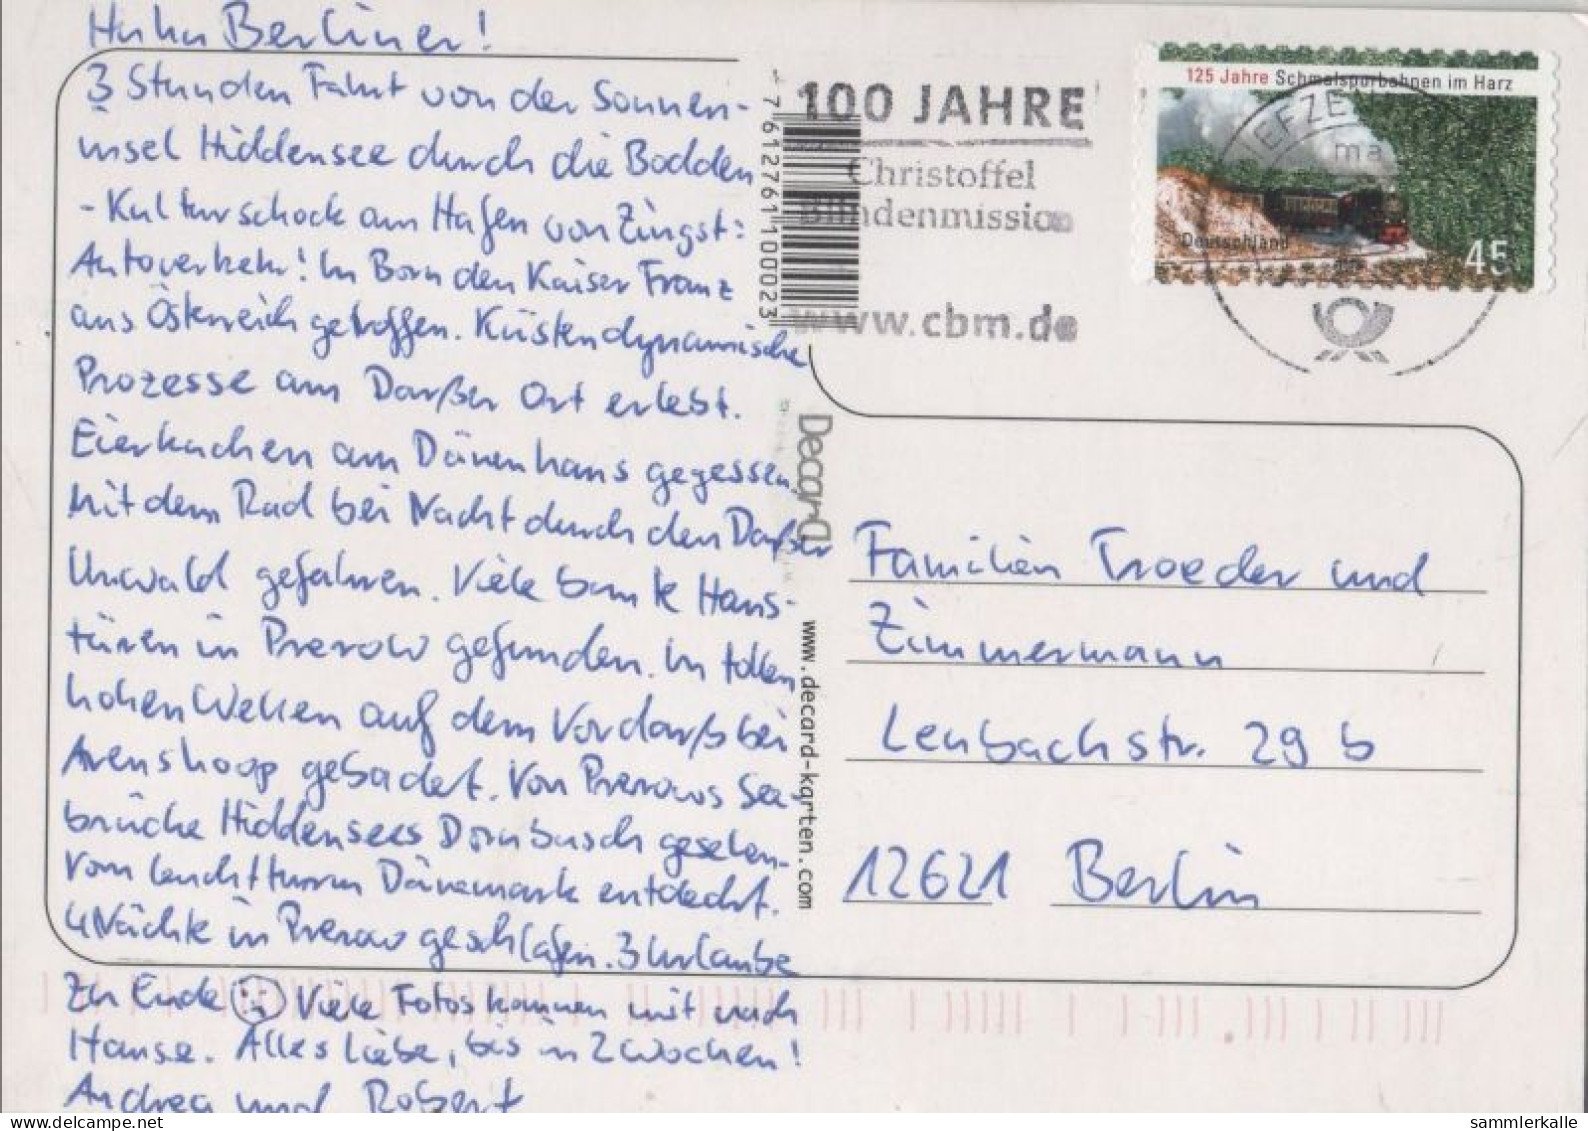 Huhu Berliner!
3 Stunden Fahrt von der Sonnen-
insel Hiddensee durch die Bodden
- Kulturschock am Hafen von Zingst:
Autoverkehr! In Born den Kaiser Franz
aus Österreich getroffen. Küstendynamische
Prozesse am Darßer Ort erlebt.
Eierkuchen am Dünenhaus gegessen.
Mit dem Rad bei Nacht durch den Darßer
Urwald gefahren. Viele bunte Haus-
türen in Prerow gefunden. In tollen
hohen Wellen auf dem Vordarß bei
Arenshoop gebadet. Von Prerows See-
brücke Hiddensees Dornbusch gesehen.
Vom Leuchtturm Dänemark entdeckt.
4 Nächte in Prerow geschlafen. 3 Urlaube
zu Ende Viele Fotos kommen mit nach
Hause. Alles Liebe, bis in 2 Wochen!
Andrea und Robert
7 612761 100023
DecarD
www.decard-karten.com
100 JAHRE
Christoffel
Blindenmission
www.cbm.de
125 Jahre Schmalspurbahnen im Harz
Deutschland
45
IEFZE
ma
Familien Troeder und
Zimmermann
Lenbachstr. 29 b
12621 Berlin
www.delcampe.net
sammlerkalle